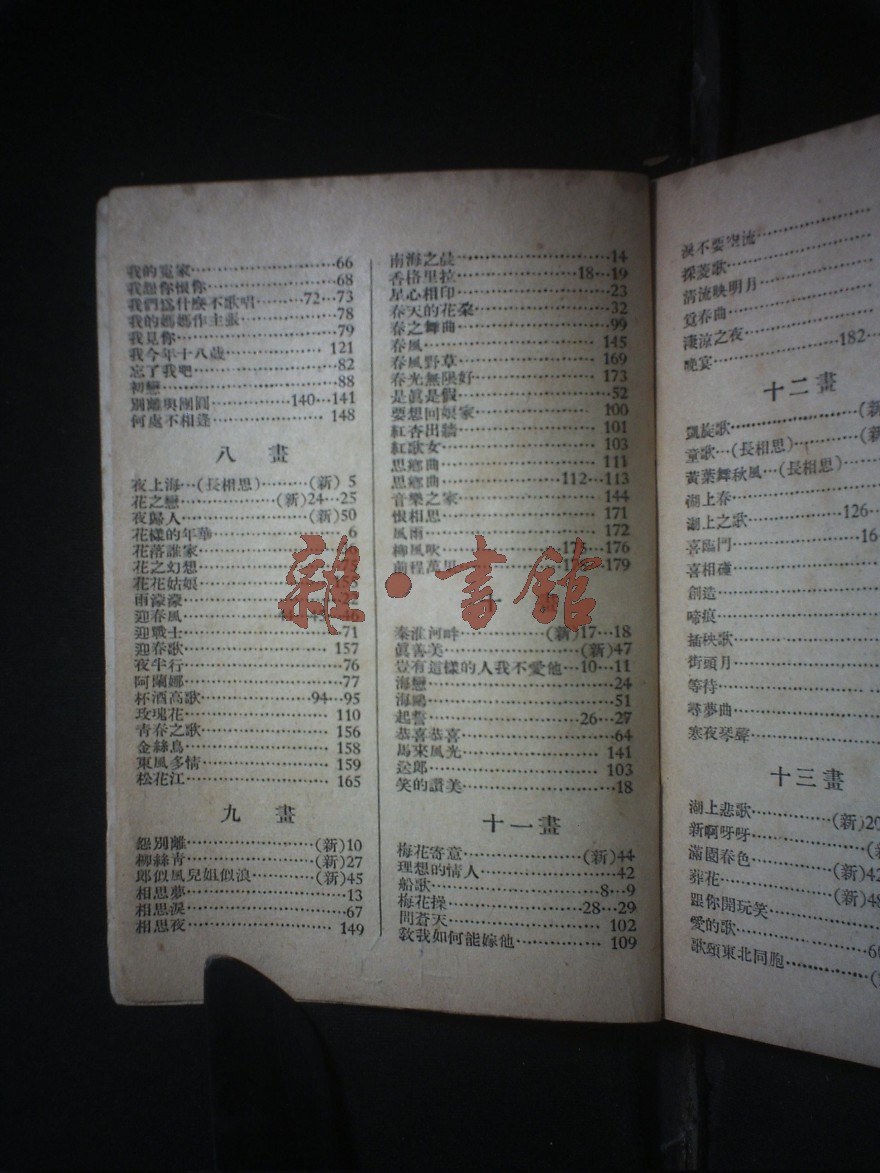 我的冤家…………66
我想你恨你…………68
我們爲什麽不歌唱……72—73
我的媽媽作主張…………78
我見你…………79
我今年十八歲…………121
忘了我吧…………82
初戀…………88
別離與團圓…………140—141
何處不相逢…………148
八 畫
夜上海…(長相思)……(新) 5
花之戀…………(新)24—25
夜歸人…………(新)50
花樣的年華…………6
花落誰家…………
花之幻想…………
花花姑娘…………
雨濛濛…………
迎春風…………
迎戰士…………71
迎春歌…………157
夜半行…………76
阿蘭娜…………77
杯酒高歌…………94—95
玫瑰花…………110
青春之歌…………156
金絲鳥…………158
東風多情…………159
松花江…………165
九 畫
怨別離…………(新)10
柳絲青…………(新)27
郎似風兒姐似浪……(新)45
相思夢…………13
相思淚…………67
相思夜…………149
南海之晨…………14
香格里拉…………18—19
星心相印…………23
春天的花朶…………32
春之舞曲…………99
春風…………145
春風野草…………169
春光無限好…………173
是眞是假…………52
要想回娘家…………100
紅杏出牆…………101
紅歌女…………103
思鄉曲…………111
思鄉曲…………112—113
音樂之家…………144
恨相思…………171
風雨…………172
柳風吹…………175—176
前程萬里…………178—179
十 畫
秦淮河畔…………(新)17—18
眞善美…………(新)47
豈有這樣的人我不愛他…10—11
海戀…………24
海鷗…………51
起誓…………26—27
恭喜恭喜…………64
馬來風光…………141
送郎…………103
笑的讚美…………18
十一畫
梅花寄意…………(新)44
理想的情人…………42
船歌…………8—9
梅花操…………28—29
問蒼天…………102
敎我如何能嫁他…………109
淚不要空流…………
採菱歌…………
清流映明月…………
覓春曲…………
淒涼之夜…………
晚宴…………182…
十二畫
凱旋歌…………(新
童歌…(長相思)……(新
黃葉舞秋風…(長相思)
湖上春…………
湖上之歌…………126…
喜臨門…………16
喜相逢…………
創造…………
啼痕…………
插秧歌…………
街頭月…………
等待…………
尋夢曲…………
寒夜琴聲…………
十三畫
湖上悲歌…………(新)20
新啊呀呀…………(新)
滿園春色…………(新)42
葬花…………(新)48
跟你開玩笑…………
愛的歌…………60
歌頌東北同胞…………(
雜·書館